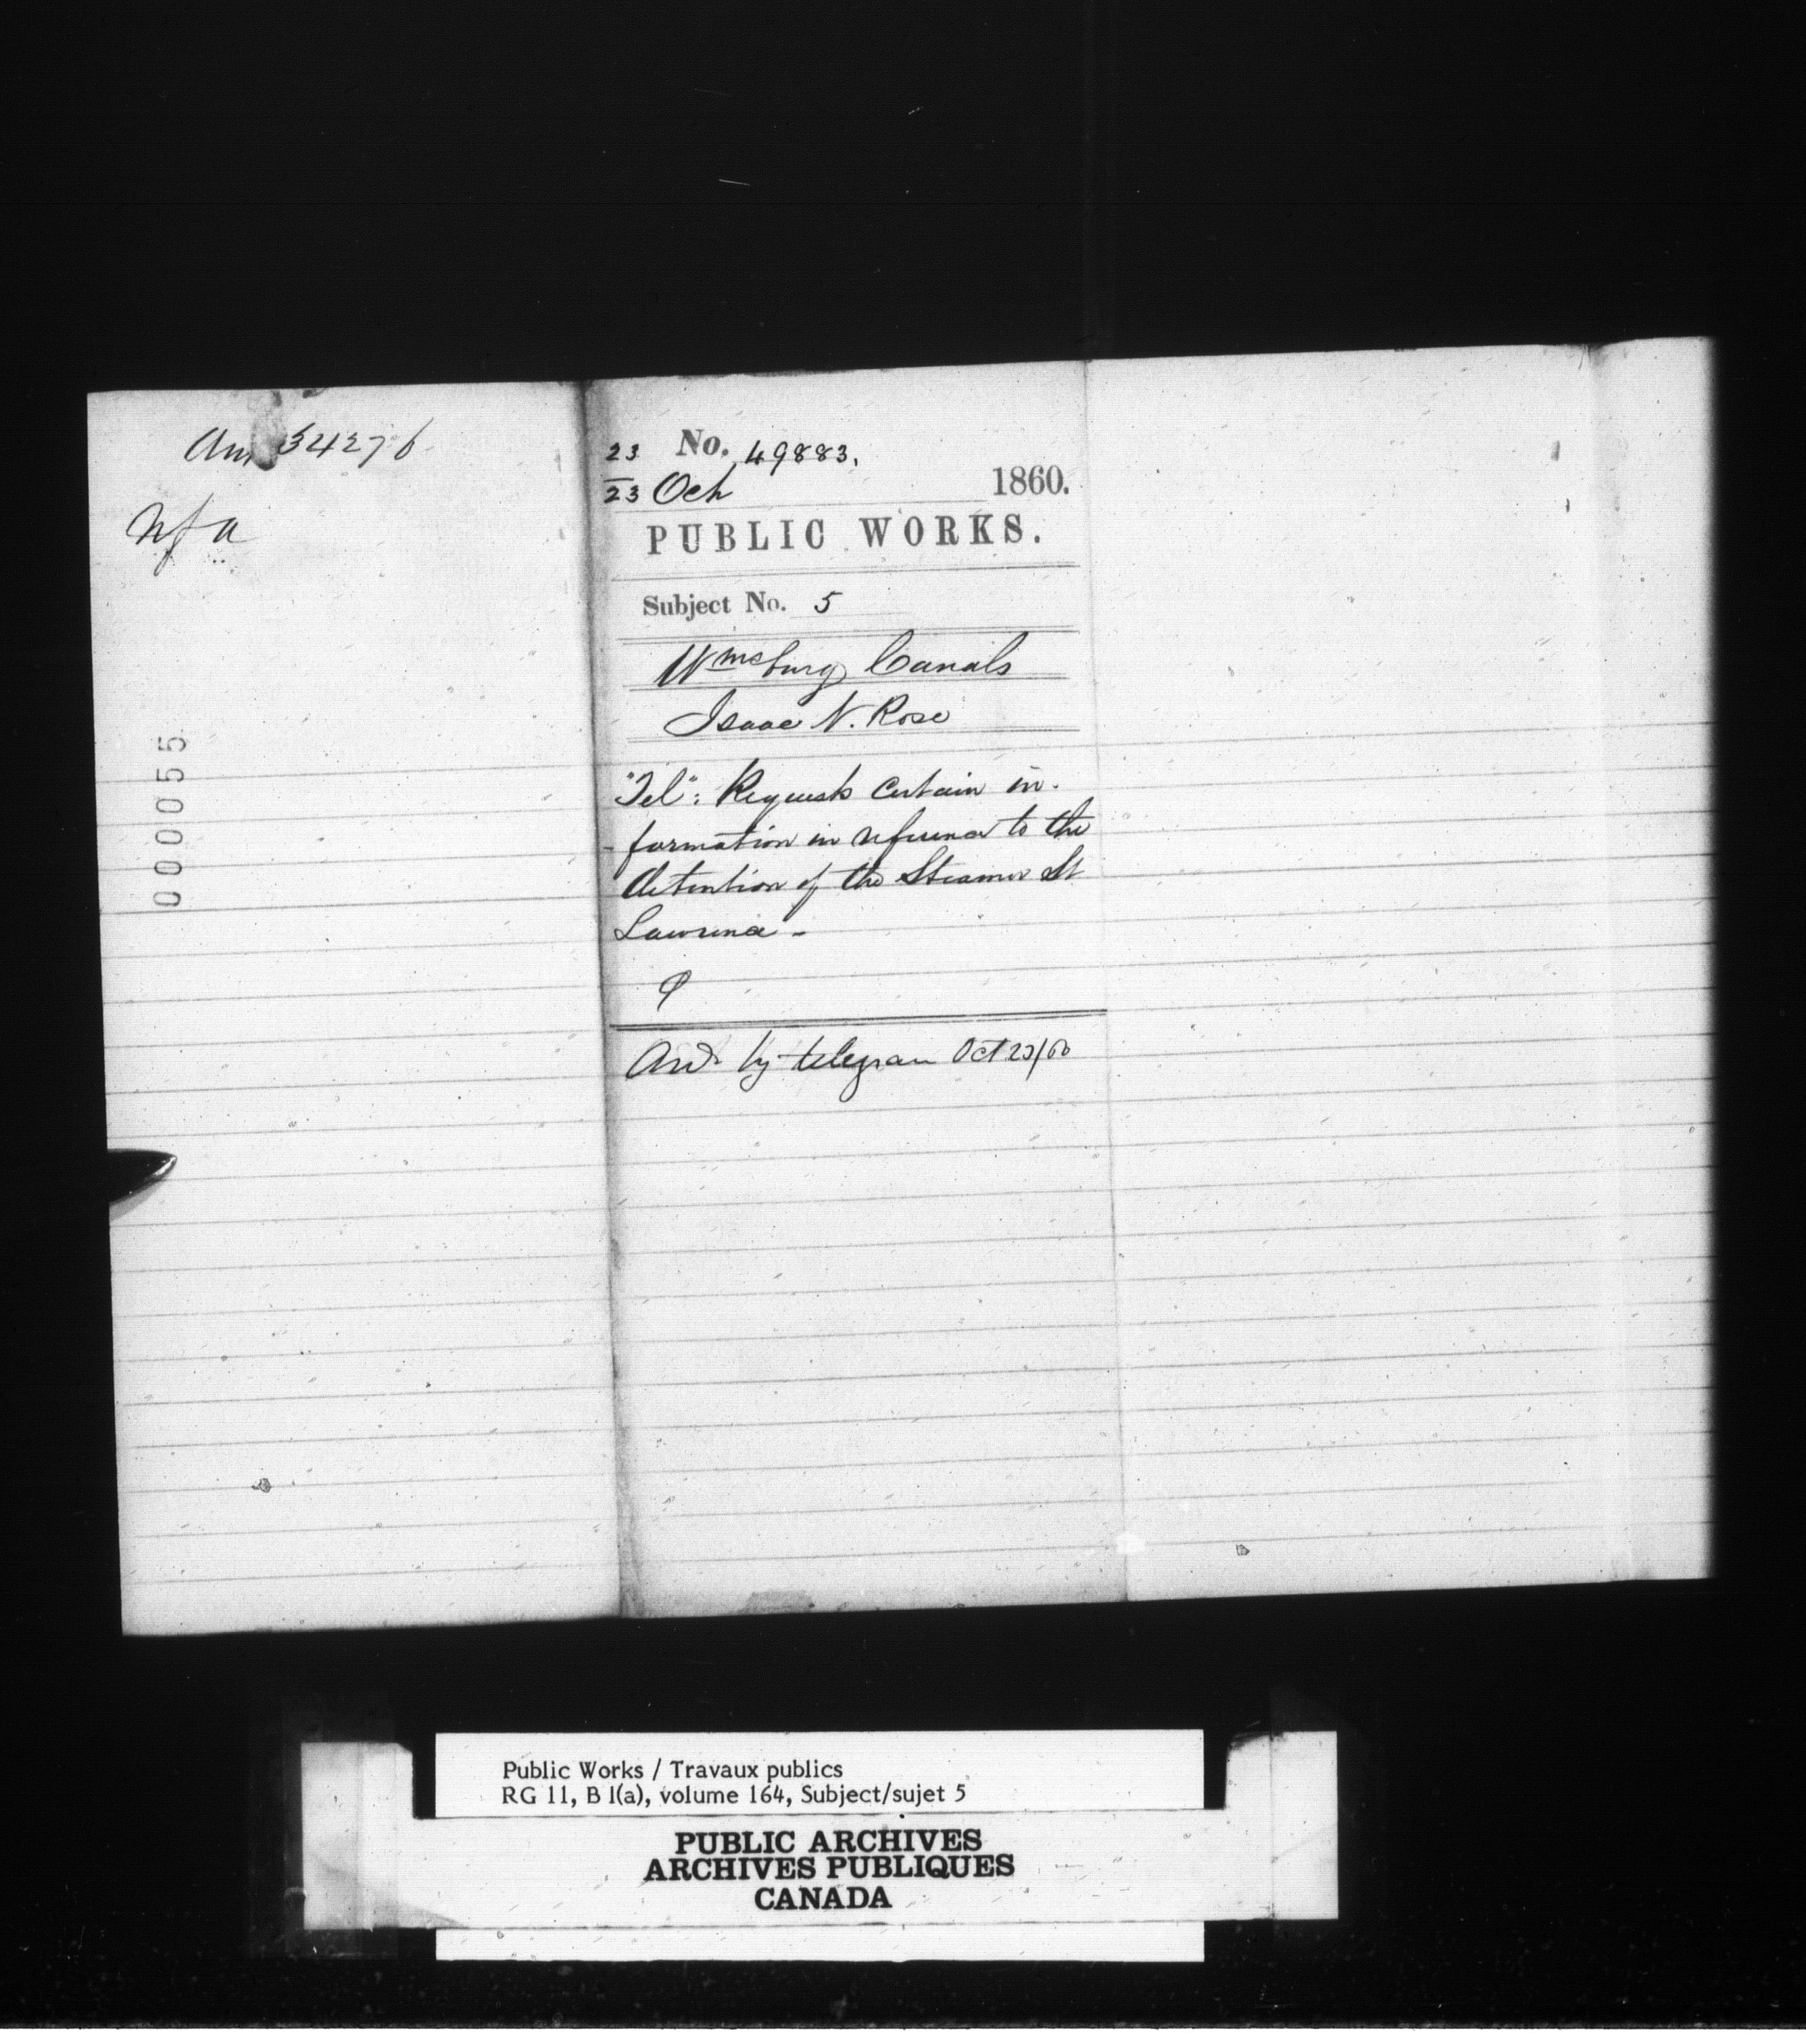 34276
nfa
000055
No. 49883.
23
23 Oct 1860.
PUBLIC WORKS.
Subject No. 5
Wmsburg Canals
Isaac N. Rose
"Tel": Requests certain in-
formation in reference to the
detention of the Steamer St
Lawrence -
Ansd by telegram Oct 23/60
Public Works / Travaux publics
RG 11, B 1(a), volume 164, Subject/sujet 5
PUBLIC ARCHIVES
ARCHIVES PUBLIQUES
CANADA